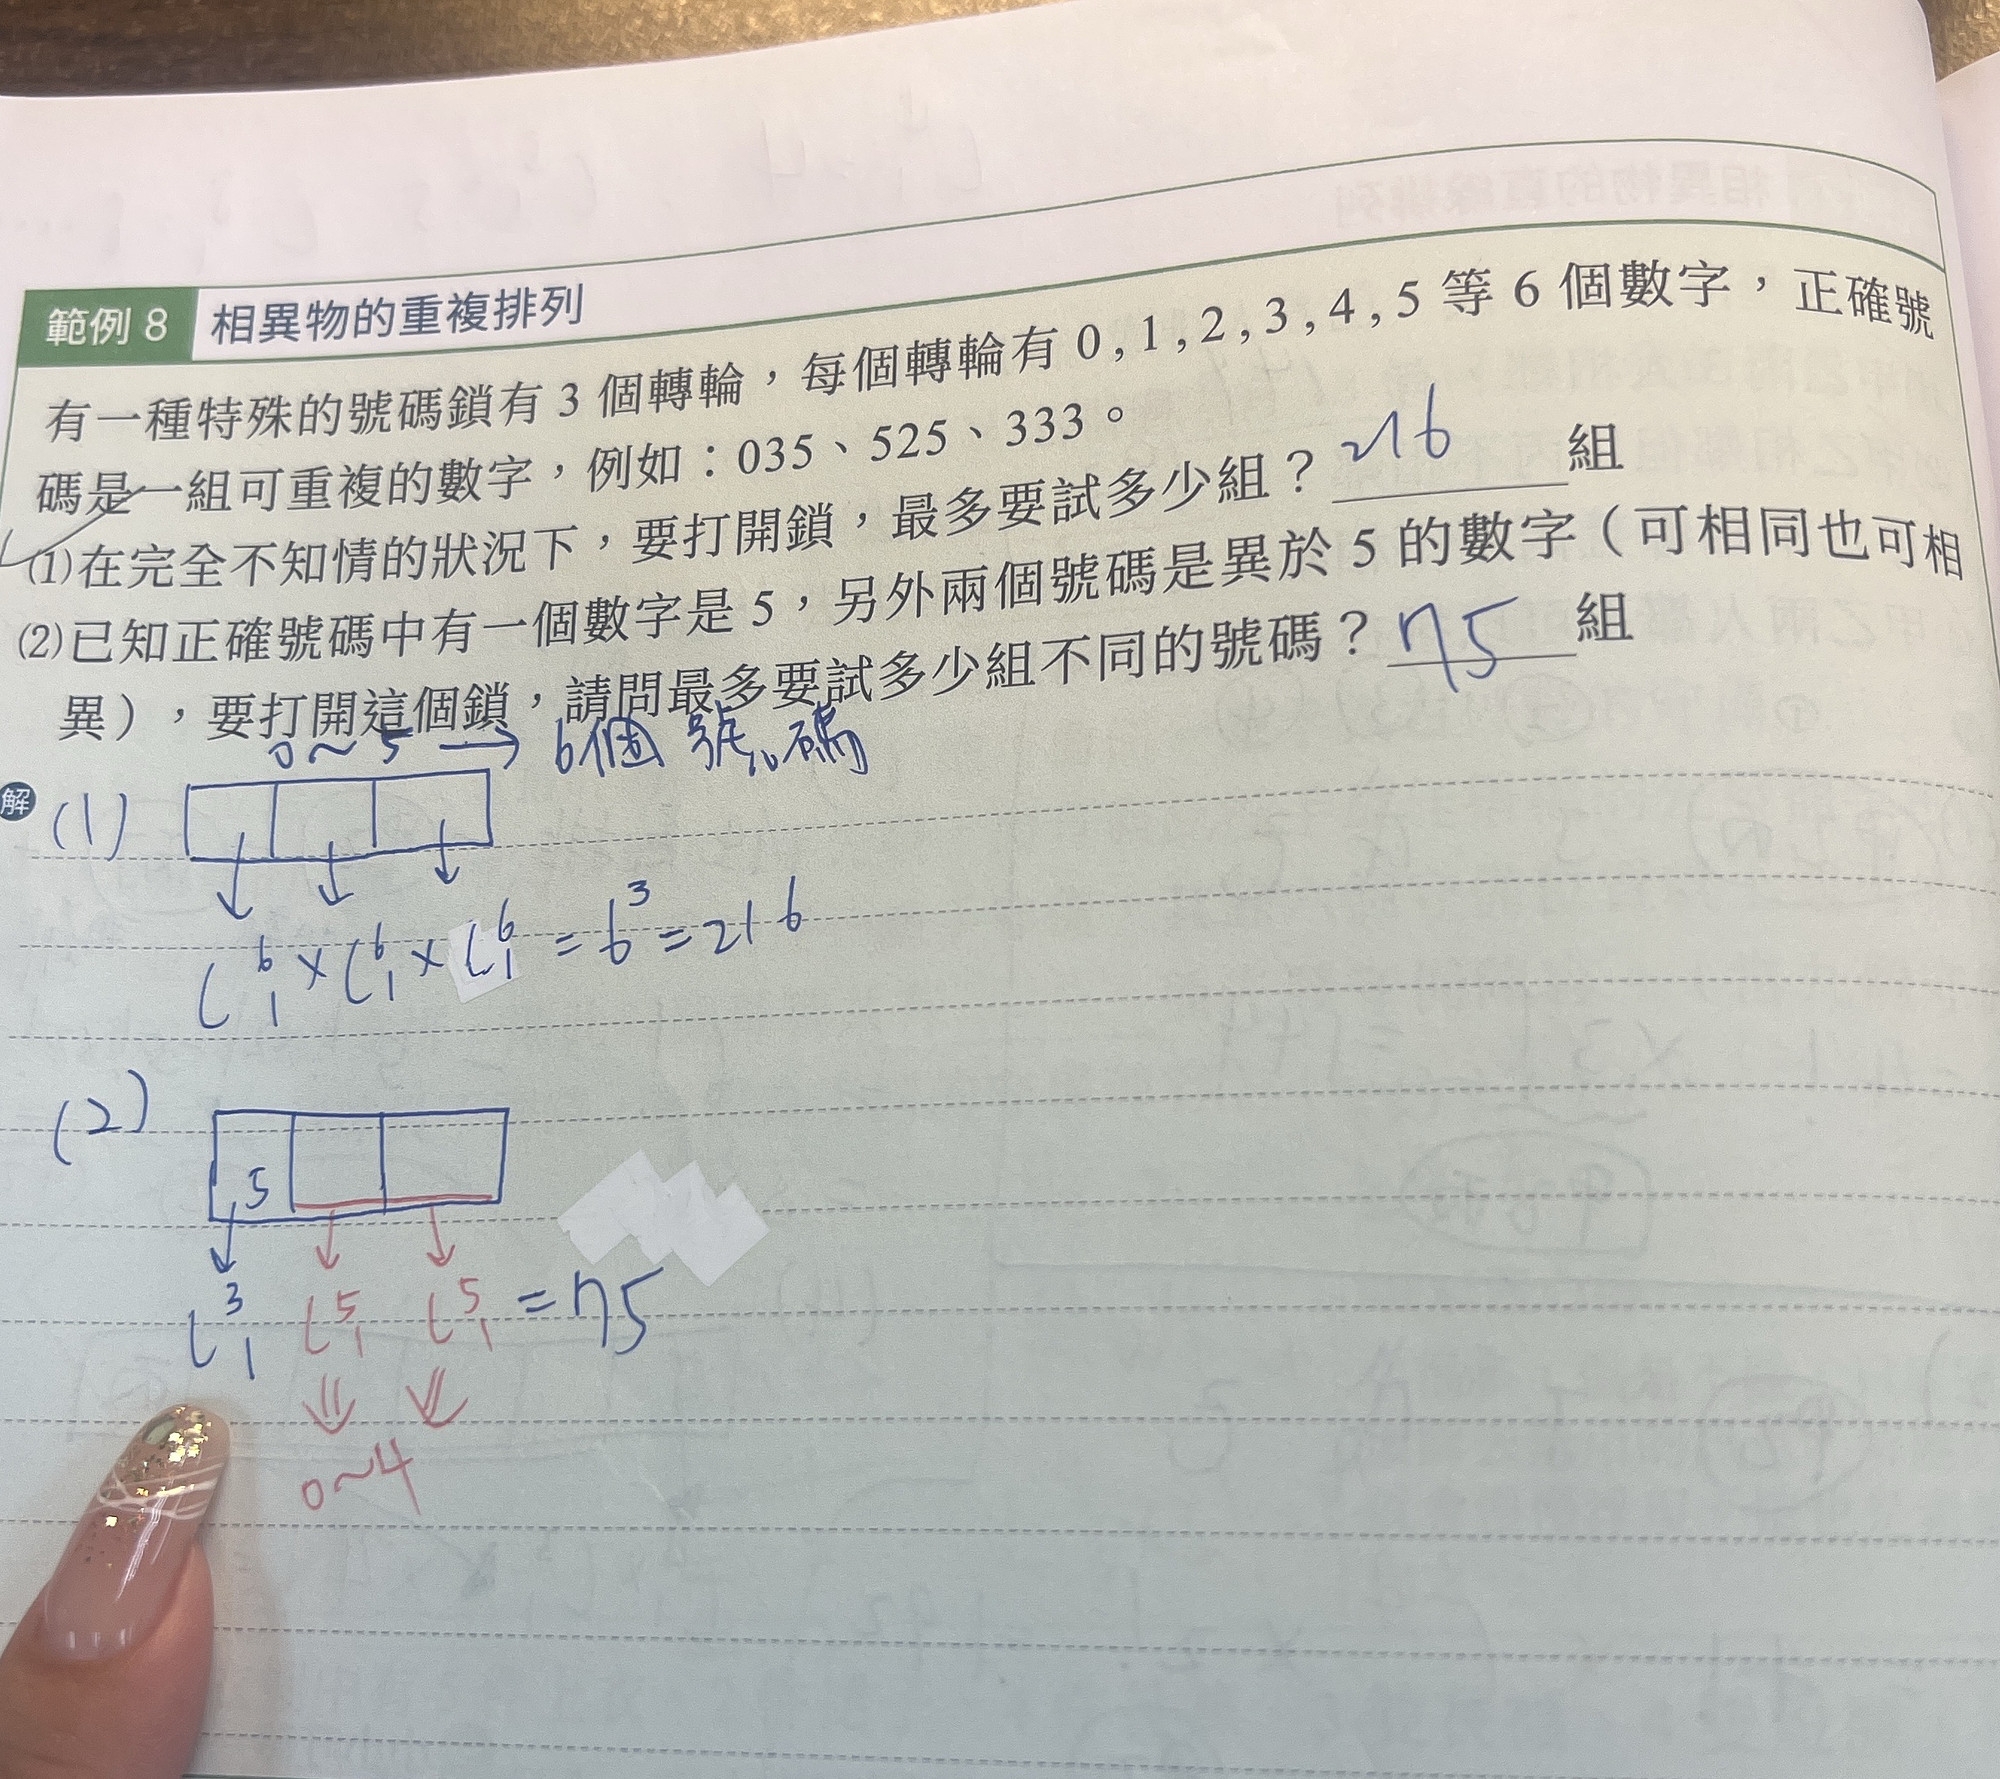 範例 8 相異物的重複排列
有一種特殊的號碼鎖有 3 個轉輪，每個轉輪有 0 , 1 , 2 , 3 , 4 , 5 等 6 個數字，正確號
碼是一組可重複的數字，例如：035、525、333。
(1)在完全不知情的狀況下，要打開鎖，最多要試多少組？ 216 組
(2)已知正確號碼中有一個數字是 5，另外兩個號碼是異於 5 的數字（可相同也可相
異），要打開這個鎖，請問最多要試多少組不同的號碼？ 75 組
0～5 → 6個號碼
解 (1)
C⁶₁ × C⁶₁ × C⁶₁ = 6³ = 216
(2)
5
C³₁ C⁵₁ C⁵₁ = 75
0～4